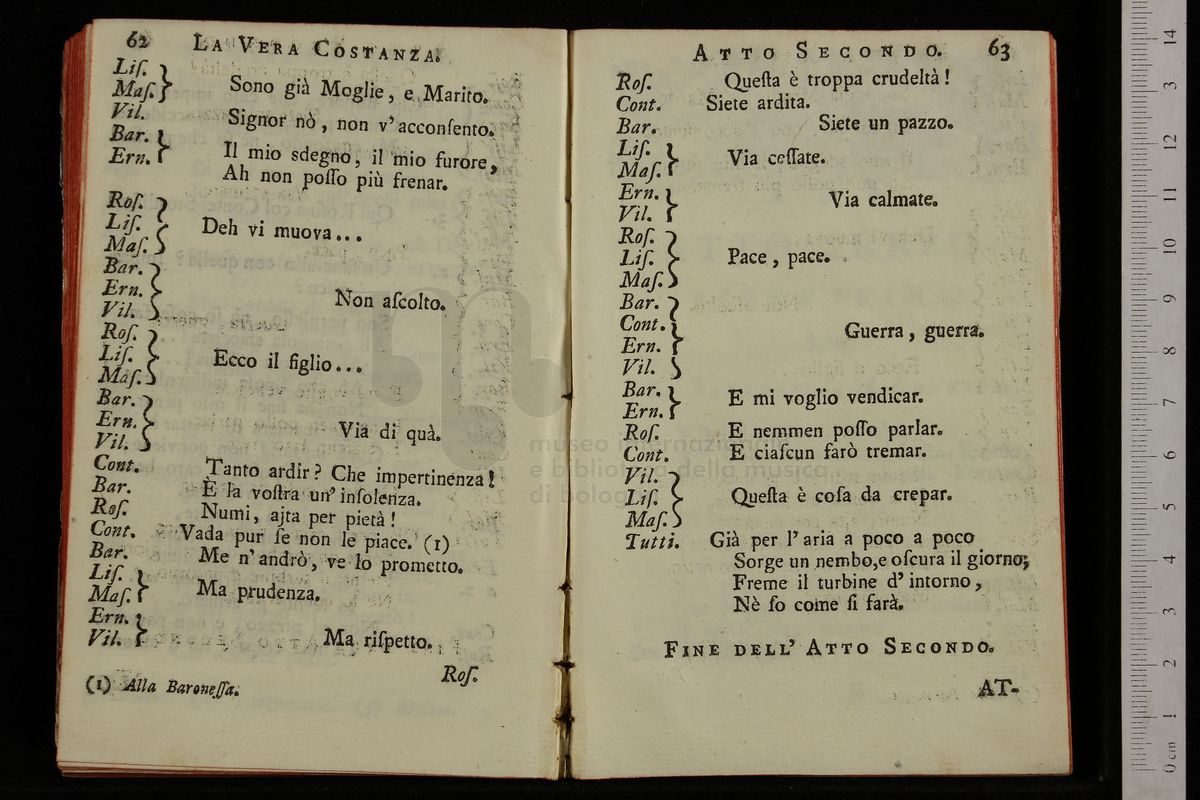 62 LA VERA COSTANZA.
Liſ.
Maſ. } Sono già Moglie, e Marito.
Vil. Signor nò, non v'acconſento.
Bar.
Ern. } Il mio sdegno, il mio furore,
Ah non poſſo più frenar.
Roſ.
Liſ. } Deh vi muova...
Maſ.
Bar.
Ern. } Non aſcolto.
Vil.
Roſ.
Liſ. } Ecco il figlio...
Maſ.
Bar.
Ern. } Via di quà.
Vil.
Cont. Tanto ardir? Che impertinenza!
Bar. È la voſtra un' inſolenza.
Roſ. Numi, ajta per pietà!
Cont. Vada pur ſe non le piace. (1)
Bar. Me n'andrò, ve lo prometto.
Liſ.
Maſ. } Ma prudenza.
Ern.
Vil. } Ma riſpetto.
Roſ.
(1) Alla Baroneſſa.
ATTO SECONDO. 63
Roſ. Queſta è troppa crudeltà!
Cont. Siete ardita.
Bar. Siete un pazzo.
Liſ.
Maſ. } Via ceſſate.
Ern.
Vil. } Via calmate.
Roſ.
Liſ. } Pace, pace.
Maſ.
Bar.
Cont. } Guerra, guerra.
Ern.
Vil.
Bar.
Ern. } E mi voglio vendicar.
Roſ. E nemmen poſſo parlar.
Cont. E ciaſcun farò tremar.
Vil.
Liſ. } Queſta è coſa da crepar.
Maſ.
Tutti. Già per l'aria a poco a poco
Sorge un nembo, e oſcura il giorno;
Freme il turbine d'intorno,
Nè ſo come ſi farà.
FINE DELL' ATTO SECONDO.
AT-
museo internazionale
e biblioteca della musica
di bologna
0 cm 1 2 3 4 5 6 7 8 9 10 11 12 3 14